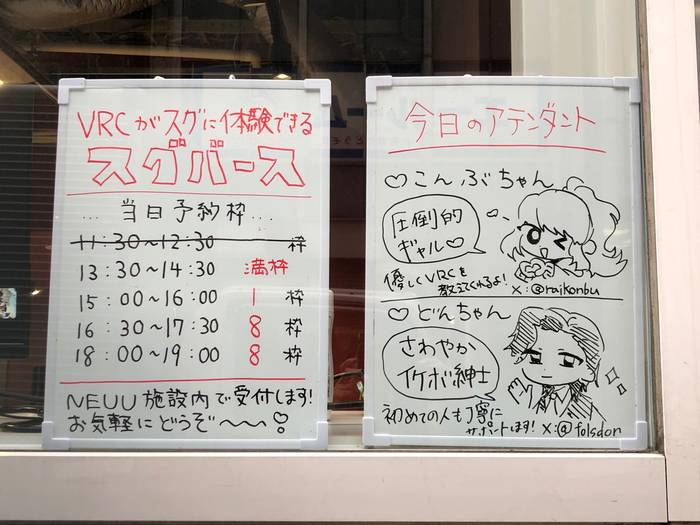 VRCがスグに体験できる
スグバース
...当日予約枠...
11:30～12:30 枠
13:30～14:30 満枠
15:00～16:00 1枠
16:30～17:30 8枠
18:00～19:00 8枠
NEUU施設内で受付します!
お気軽にどうぞ～〜♡
今日のアテンダント
♡こんぶちゃん
圧倒的
ギャル♡
優しくVRCを
教えてくれるよ!
X:@raikonbu
♡どんちゃん
さわやか
イケボ紳士
初めての人も丁寧に
サポートします! X:@folsdon